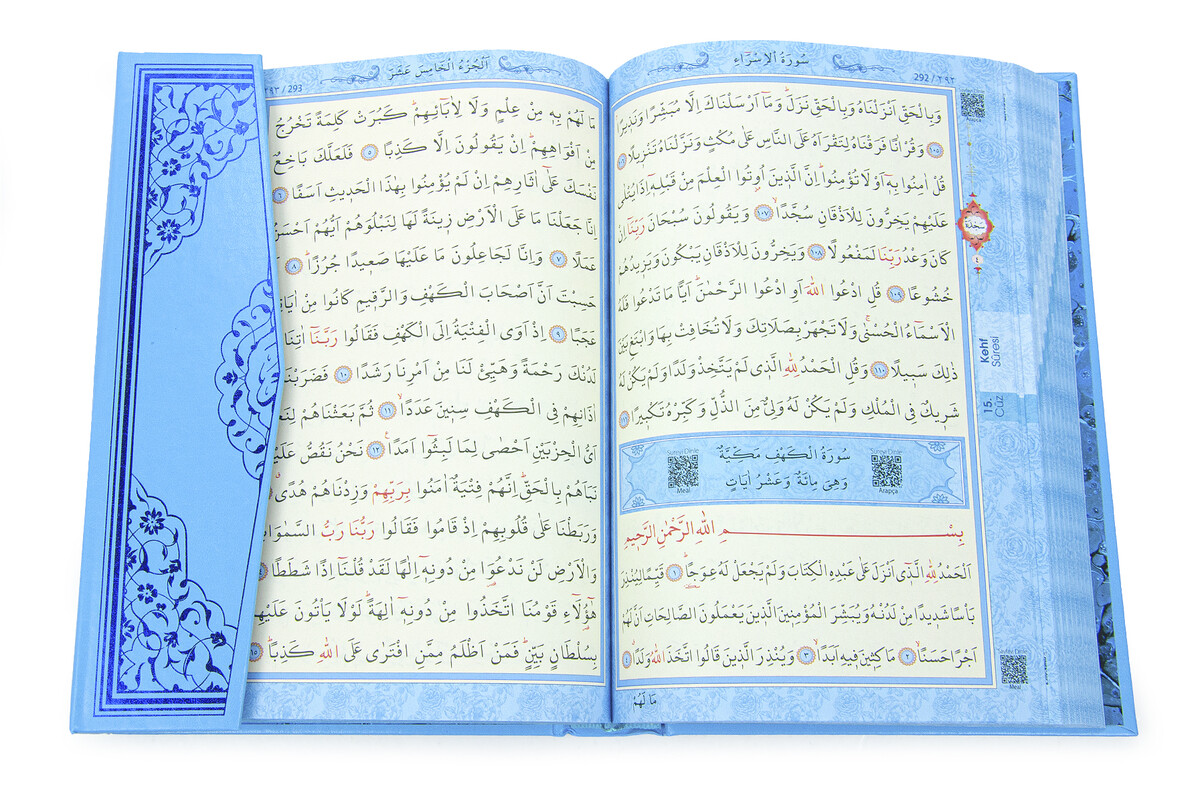 سُورَةُ الْاِسْرَٓاءِ
292 / ٢٩٢
وَبِالْحَقِّ اَنْزَلْنَاهُ وَبِالْحَقِّ نَزَلَۜ وَمَٓا اَرْسَلْنَاكَ اِلَّا مُبَشِّرًا وَنَذِيرًاۢ
﴿١٠٥﴾ وَقُرْاٰنًا فَرَقْنَاهُ لِتَقْرَاَهُ عَلَى النَّاسِ عَلٰى مُكْثٍ وَنَزَّلْنَاهُ تَنْزِيلًا ﴿١٠٦﴾
قُلْ اٰمِنُوا بِهِٓ اَوْ لَا تُؤْمِنُواۜ اِنَّ الَّذِينَ اُو۫تُوا الْعِلْمَ مِنْ قَبْلِهِٓ اِذَا يُتْلٰى
عَلَيْهِمْ يَخِرُّونَ لِلْاَذْقَانِ سُجَّدًاۙ ﴿١٠٧﴾ وَيَقُولُونَ سُبْحَانَ رَبِّنَٓا اِنْ
كَانَ وَعْدُ رَبِّنَا لَمَفْعُولًا ﴿١٠٨﴾ وَيَخِرُّونَ لِلْاَذْقَانِ يَبْكُونَ وَيَزِيدُهُمْ
خُشُوعًا ﴿١٠٩﴾ قُلِ ادْعُوا اللّٰهَ اَوِ ادْعُوا الرَّحْمٰنَۜ اَيًّا مَا تَدْعُوا فَلَهُ
الْاَسْمَٓاءُ الْحُسْنٰىۚ وَلَا تَجْهَرْ بِصَلَاتِكَ وَلَا تُخَافِتْ بِهَا وَابْتَغِ بَيْنَ
ذٰلِكَ سَبِيلًا ﴿١١٠﴾ وَقُلِ الْحَمْدُ لِلّٰهِ الَّذِي لَمْ يَتَّخِذْ وَلَدًا وَلَمْ يَكُنْ لَهُ
شَرِيكٌ فِي الْمُلْكِ وَلَمْ يَكُنْ لَهُ وَلِيٌّ مِنَ الذُّلِّ وَكَبِّرْهُ تَكْبِيرًا ﴿١١١﴾
سُورَةُ الْكَهْفِ مَكِّيَّةٌ
وَهِيَ مِائَةٌ وَعَشْرُ اٰيَاتٍ
Sureyi Dinle
Arapça
Sureyi Dinle
Meâl
بِسْمِ اللّٰهِ الرَّحْمٰنِ الرَّحِيمِ
اَلْحَمْدُ لِلّٰهِ الَّذِٓي اَنْزَلَ عَلٰى عَبْدِهِ الْكِتَابَ وَلَمْ يَجْعَلْ لَهُ عِوَجًاۜ ﴿١﴾ قَيِّمًا لِيُنْذِرَ
بَاْسًا شَدِيدًا مِنْ لَدُنْهُ وَيُبَشِّرَ الْمُؤْمِنِينَ الَّذِينَ يَعْمَلُونَ الصَّالِحَاتِ اَنَّ لَهُمْ
اَجْرًا حَسَنًاۙ ﴿٢﴾ مَاكِثِينَ فِيهِ اَبَدًاۙ ﴿٣﴾ وَيُنْذِرَ الَّذِينَ قَالُوا اتَّخَذَ اللّٰهُ وَلَدًاۗ ﴿٤﴾
مَا لَهُمْ
Arapça
سَجْدَة
٤
Kehf
Sûresi
15.
Cüz
Sayfayı Dinle
Meâl
اَلْجُزْءُ الْخَامِسَ عَشَرَ
٢٩٣ / 293
مَا لَهُمْ بِهِ مِنْ عِلْمٍ وَلَا لِاٰبَٓائِهِمْۜ كَبُرَتْ كَلِمَةً تَخْرُجُ
مِنْ اَفْوَاهِهِمْۜ اِنْ يَقُولُونَ اِلَّا كَذِبًا ﴿٥﴾ فَلَعَلَّكَ بَاخِعٌ
نَفْسَكَ عَلٰٓى اٰثَارِهِمْ اِنْ لَمْ يُؤْمِنُوا بِهٰذَا الْحَدِيثِ اَسَفًا ﴿٦﴾
اِنَّا جَعَلْنَا مَا عَلَى الْاَرْضِ زِينَةً لَهَا لِنَبْلُوَهُمْ اَيُّهُمْ اَحْسَنُ
عَمَلًا ﴿٧﴾ وَاِنَّا لَجَاعِلُونَ مَا عَلَيْهَا صَعِيدًا جُرُزًاۜ ﴿٨﴾
حَسِبْتَ اَنَّ اَصْحَابَ الْكَهْفِ وَالرَّقِيمِ كَانُوا مِنْ
عَجَبًا ﴿٩﴾ اِذْ اَوَى الْفِتْيَةُ اِلَى الْكَهْفِ فَقَالُوا رَبَّنَٓا اٰتِنَا
لَدُنْكَ رَحْمَةً وَهَيِّئْ لَنَا مِنْ اَمْرِنَا رَشَدًا ﴿١٠﴾ فَضَرَبْنَا
اٰذَانِهِمْ فِي الْكَهْفِ سِنِينَ عَدَدًاۙ ﴿١١﴾ ثُمَّ بَعَثْنَاهُمْ
اَيُّ الْحِزْبَيْنِ اَحْصٰى لِمَا لَبِثُٓوا اَمَدًا۟ ﴿١٢﴾ نَحْنُ نَقُصُّ
نَبَاَهُمْ بِالْحَقِّۜ اِنَّهُمْ فِتْيَةٌ اٰمَنُوا بِرَبِّهِمْ وَزِدْنَاهُمْ هُدًى
وَرَبَطْنَا عَلٰى قُلُوبِهِمْ اِذْ قَامُوا فَقَالُوا رَبُّنَا رَبُّ
وَالْاَرْضِ لَنْ نَدْعُوَ۬ا مِنْ دُونِهِٓ اِلٰهًا لَقَدْ قُلْنَٓا اِذًا شَطَطًا
هٰٓؤُ۬لَٓاءِ قَوْمُنَا اتَّخَذُوا مِنْ دُونِهِٓ اٰلِهَةًۜ لَوْلَا يَأْتُونَ عَلَيْهِمْ
بِسُلْطَانٍ بَيِّنٍۜ فَمَنْ اَظْلَمُ مِمَّنِ افْتَرٰى عَلَى اللّٰهِ كَذِبًاۜ ﴿١٥﴾